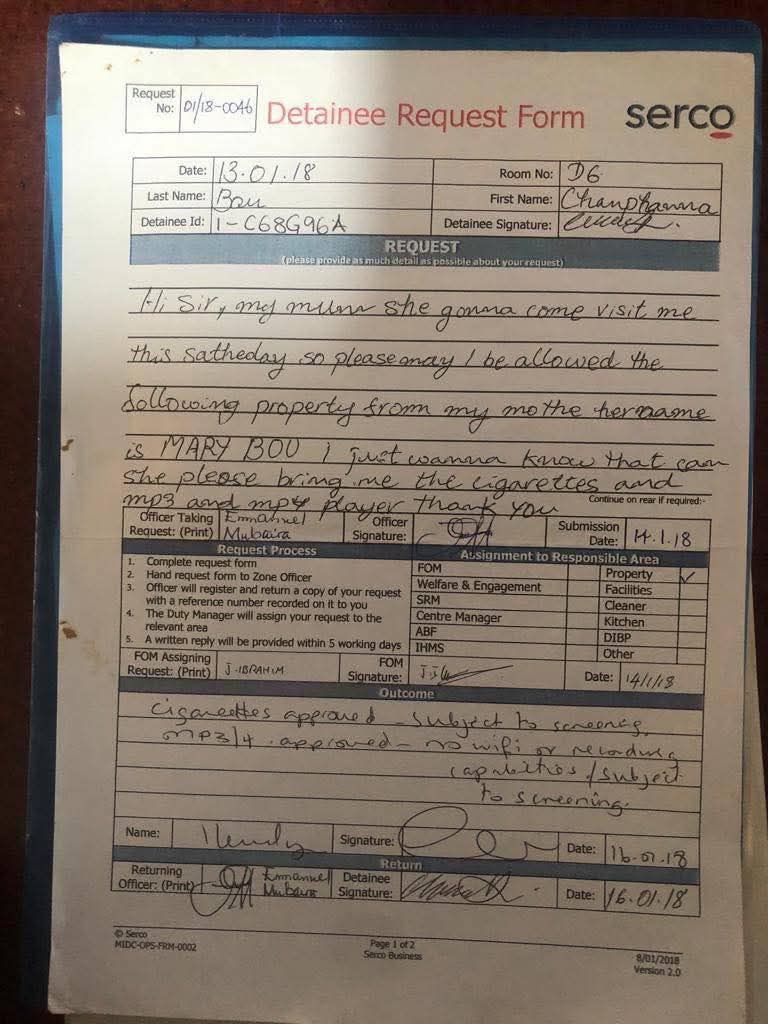 Request No: 01/18-0046
Detainee Request Form
serco
Date: 13.01.18 Room No: D6
Last Name: Bou First Name: Chanphanna
Detainee Id: 1-C68G96A Detainee Signature:
REQUEST
(please provide as much detail as possible about your request)
Hi Sir, my mum she gonna come visit me
this Satheday so please may I be allowed the
following property from my mothe her name
is MARY BOU I just wanna know that can
she please bring me the cigarettes and
mp3 and mp4 player thank you
Continue on rear if required:-
Officer Taking Request: (Print) Emmanuel Mubaira Officer Signature: Submission Date: 14.1.18
Request Process
1. Complete request form
2. Hand request form to Zone Officer
3. Officer will register and return a copy of your request
with a reference number recorded on it to you
4. The Duty Manager will assign your request to the
relevant area
5. A written reply will be provided within 5 working days
Assignment to Responsible Area
FOM Property ✓
Welfare & Engagement Facilities
SRM Cleaner
Centre Manager Kitchen
ABF DIBP
IHMS Other
FOM Assigning Request: (Print) J-IBRAHIM FOM Signature: Date: 14/1/18
Outcome
Cigarettes approved - subject to screening.
MP3/4 approved - no wifi or recording
capabilities / subject
to screening.
Name: Signature: Date: 16.01.18
Return
Returning Officer: (Print) Emmanuel Mubaira Detainee Signature: Date: 16.01.18
© Serco
MIDC-OPS-FRM-0002
Page 1 of 2
Serco Business
8/01/2018
Version 2.0